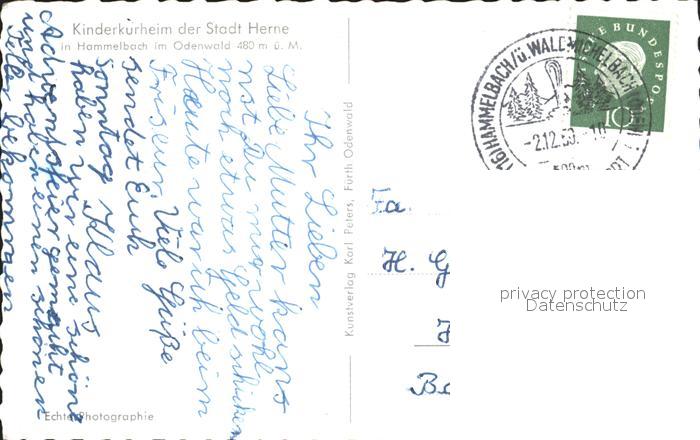 Kinderkurheim der Stadt Herne
in Hammelbach im Odenwald 480 m ü. M.
Ihr Lieben
Liebe Mutter kans
nst Du mir wohl
noch etwas Geld schicken
Heute war ich beim
Friseur. Viele Grüße
sendet Euch
Klaus
Sonntag
haben wir eine schöne
Adventsfeier gemacht
und haben einen schönen
bekommen
Echte Photographie
Kunstverlag Karl Peters, Fürth Odenwald
HAMMELBACH/ü. WALDMICHELBACH
-2.12.59.-10
BUNDESPOST
10
Fa.
H. G
Be
privacy protection
Datenschutz